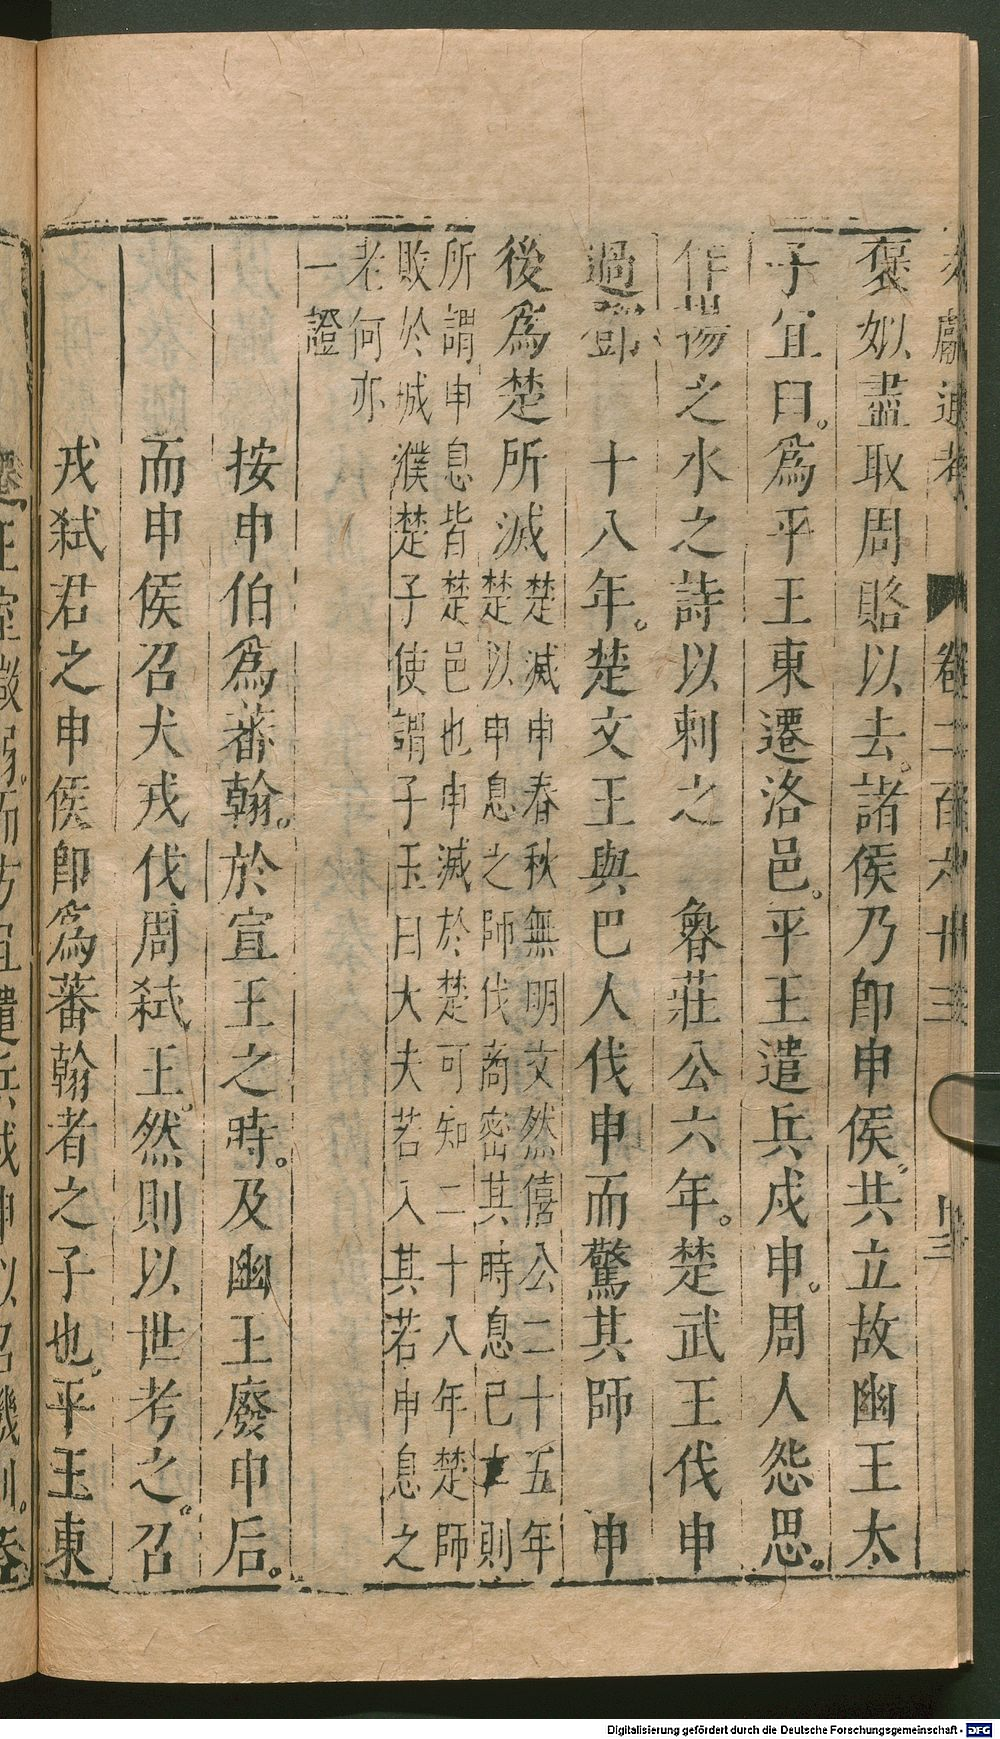 文獻通考 卷二百六十三
褒姒盡取周賂以去諸侯乃卽申侯共立故幽王太
子宜臼爲平王東遷洛邑平王遣兵戍申周人怨思
作揚之水之詩以刺之 魯莊公六年楚武王伐申
過鄧 十八年楚文王與巴人伐申而驚其師 申
後爲楚所滅
楚滅申春秋無明文然僖公二十五年
楚以申息之師伐商密其時息已亡則
所謂申息皆楚邑也申滅於楚可知二十八年楚師
敗於城濮楚子使謂子玉曰大夫若入其若申息之
老何亦
一證
按申伯爲蕃翰於宣王之時及幽王廢申后
而申侯召犬戎伐周弒王然則以世考之召
戎弒君之申侯卽爲蕃翰者之子也平王東
王室微弱而方且遣兵戍申以召譏刺
Digitalisierung gefördert durch die Deutsche Forschungsgemeinschaft - DFG